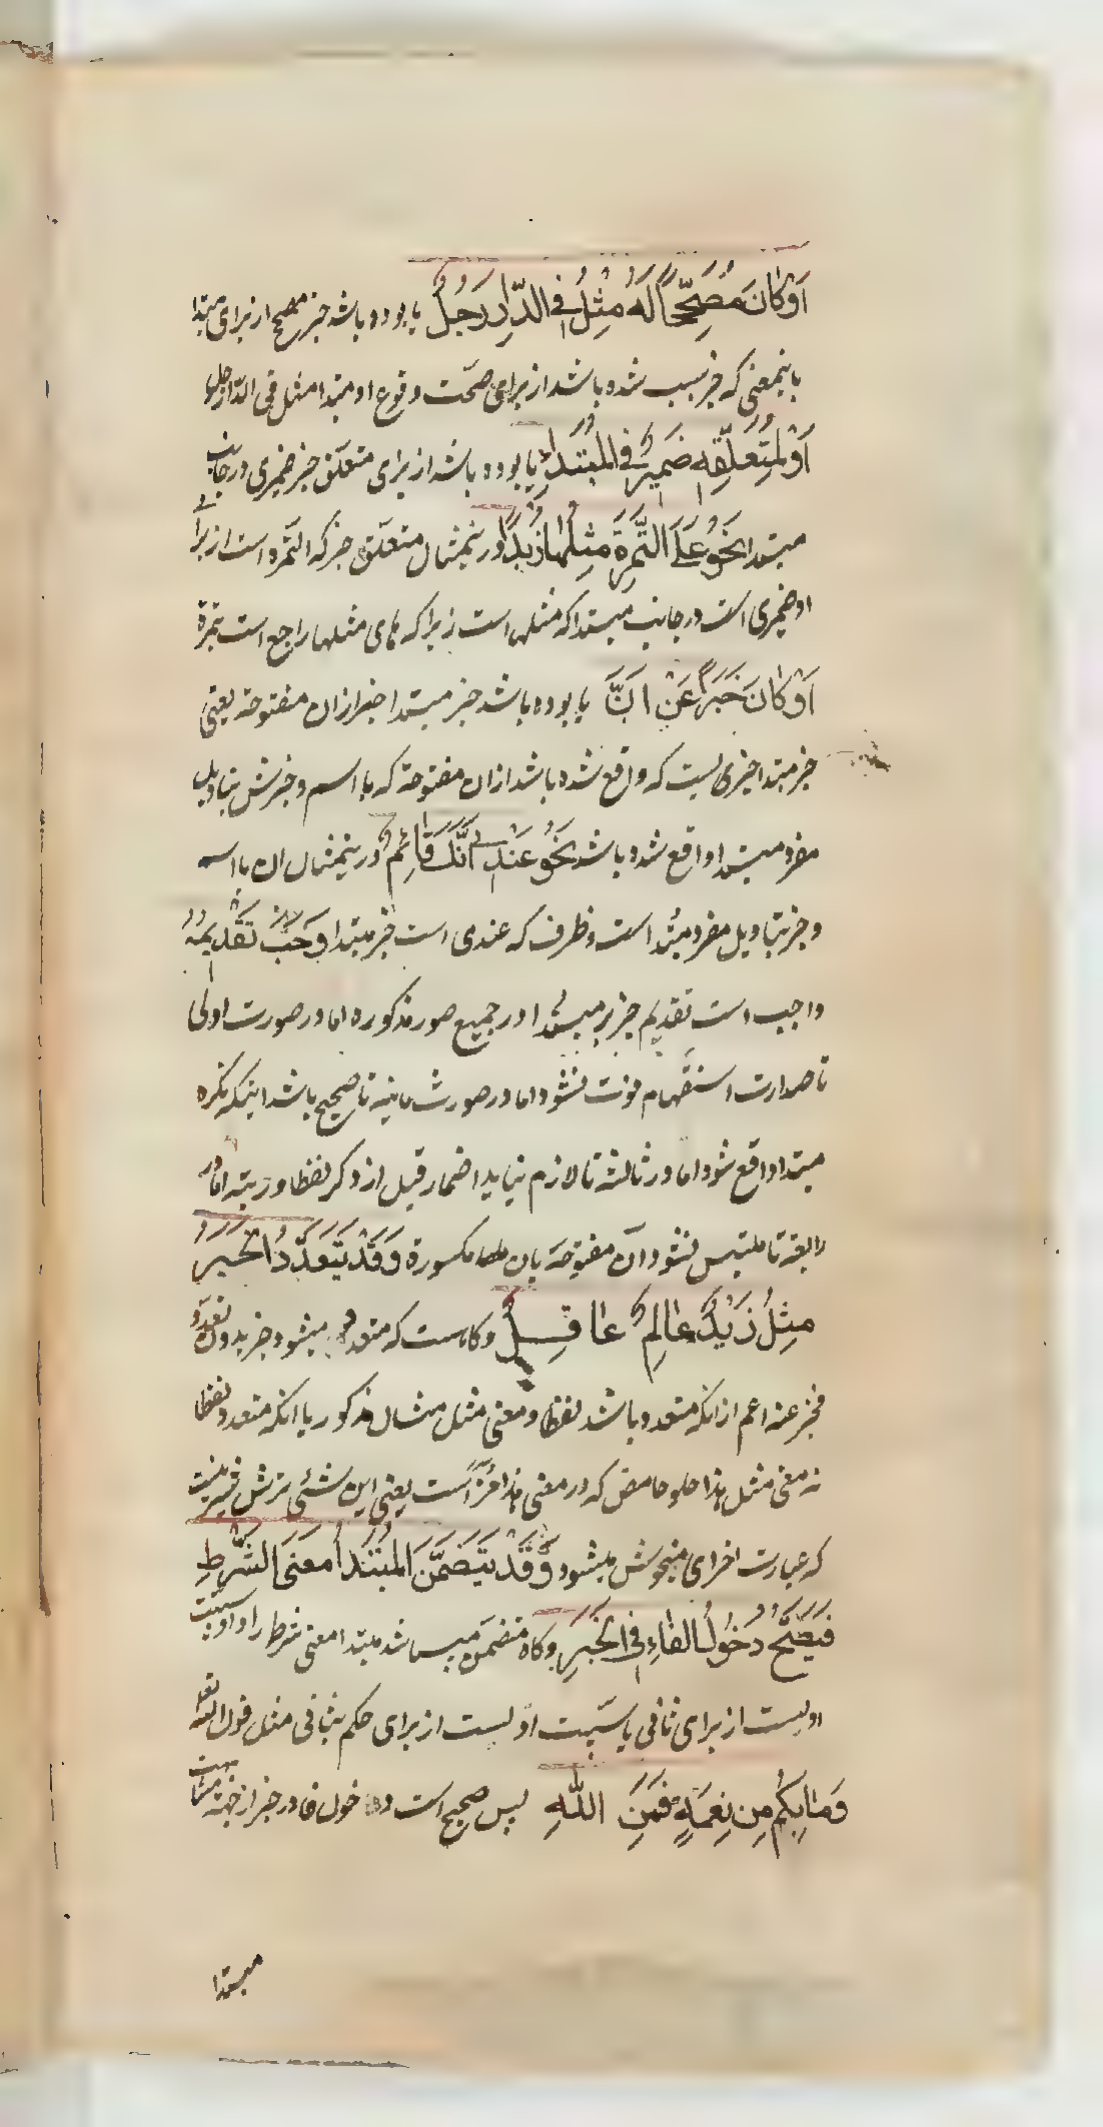 اَوْ کانَ مُصَحِّحاً لَهُ مِثْلُ فِی الدّارِ رَجُلٌ یا بوده باشد خبر مصحح از برای مبتدا
باینمعنی که خبر سبب شده باشد از برای صحّت وقوع او مبتدا مثل فی الدّار رجل
اَوْ لِمُتَعَلِّقِهِ ضَمِیرٌ فِی المُبْتَدَاءِ یا بوده باشد از برای متعلّق خبر ضمیری در جانب
مبتدا نَحْوُ عَلَی التَّمْرَةِ مِثْلُها زُبْداً در نیمثال متعلّق خبر که التمره است از برای
او ضمیری است در جانب مبتدا که مثلها است زیرا که های مثلها راجع است بتمرة
اَوْ کانَ خَبَراً عَنْ اَنَّ یا بوده باشد خبر مبتدا خبر از ان مفتوحة یعنی
خبر مبتدا خبری است که واقع شده باشد از ان مفتوحة که با اسم و خبرش بتاویل
مفرد مبتدا واقع شده باشد نَحْوُ عِنْدِی اَنَّکَ قائِمٌ در نیمثال ان با اسم
و خبر بتاویل مفرد مبتدا است و ظرف که عندی است خبر مبتدا وَجَبَ تَقْدِیمُهُ
واجب است تقدیم خبر بر مبتدا در جمیع صور مذکوره اما در صورت اولی
تا صدارت استفهام فوت نشود اما در صورت ثانیه تا صحیح باشد اینکه نکره
مبتدا واقع شود اما در ثالثه تا لازم نیاید اضمار قبل از ذکر لفظا و رتبه اما در
رابعه تا ملتبس نشود انّ مفتوحة بان مکسورة وَقَدْ یَتَعَدَّدُ الْخَبَرُ
مِثْلُ زَیْدٌ عالِمٌ عاقِلٌ وکاهست که متعدد میشود خبر بدون تعدّد
مخبر عنه اعم از انکه متعدد باشد لفظا و معنی مثل مثال مذکور یا انکه متعدد لفظا
نه معنی مثل هذا حلو حامض که در معنی هذا مزّ است یعنی این شئی ترش شیرینست
که عبارت اخرای میخوش میشود وَقَدْ یَتَضَمَّنُ المُبْتَدَأُ مَعْنَی الشَّرْطِ
فَیَصِحُّ دُخُولُ الفاءِ فِی الْخَبَرِ وکاه متضمن میباشد مبتدا معنی شرط را و آن سببیّت
اولست از برای ثانی یا سببیّت اولست از برای حکم بثانی مثل قول الله تعالی
وَما بِکُمْ مِنْ نِعْمَةٍ فَمِنَ اللّٰهِ پس صحیح است دخول فا در خبر از جهة مشابهت
مبتدا